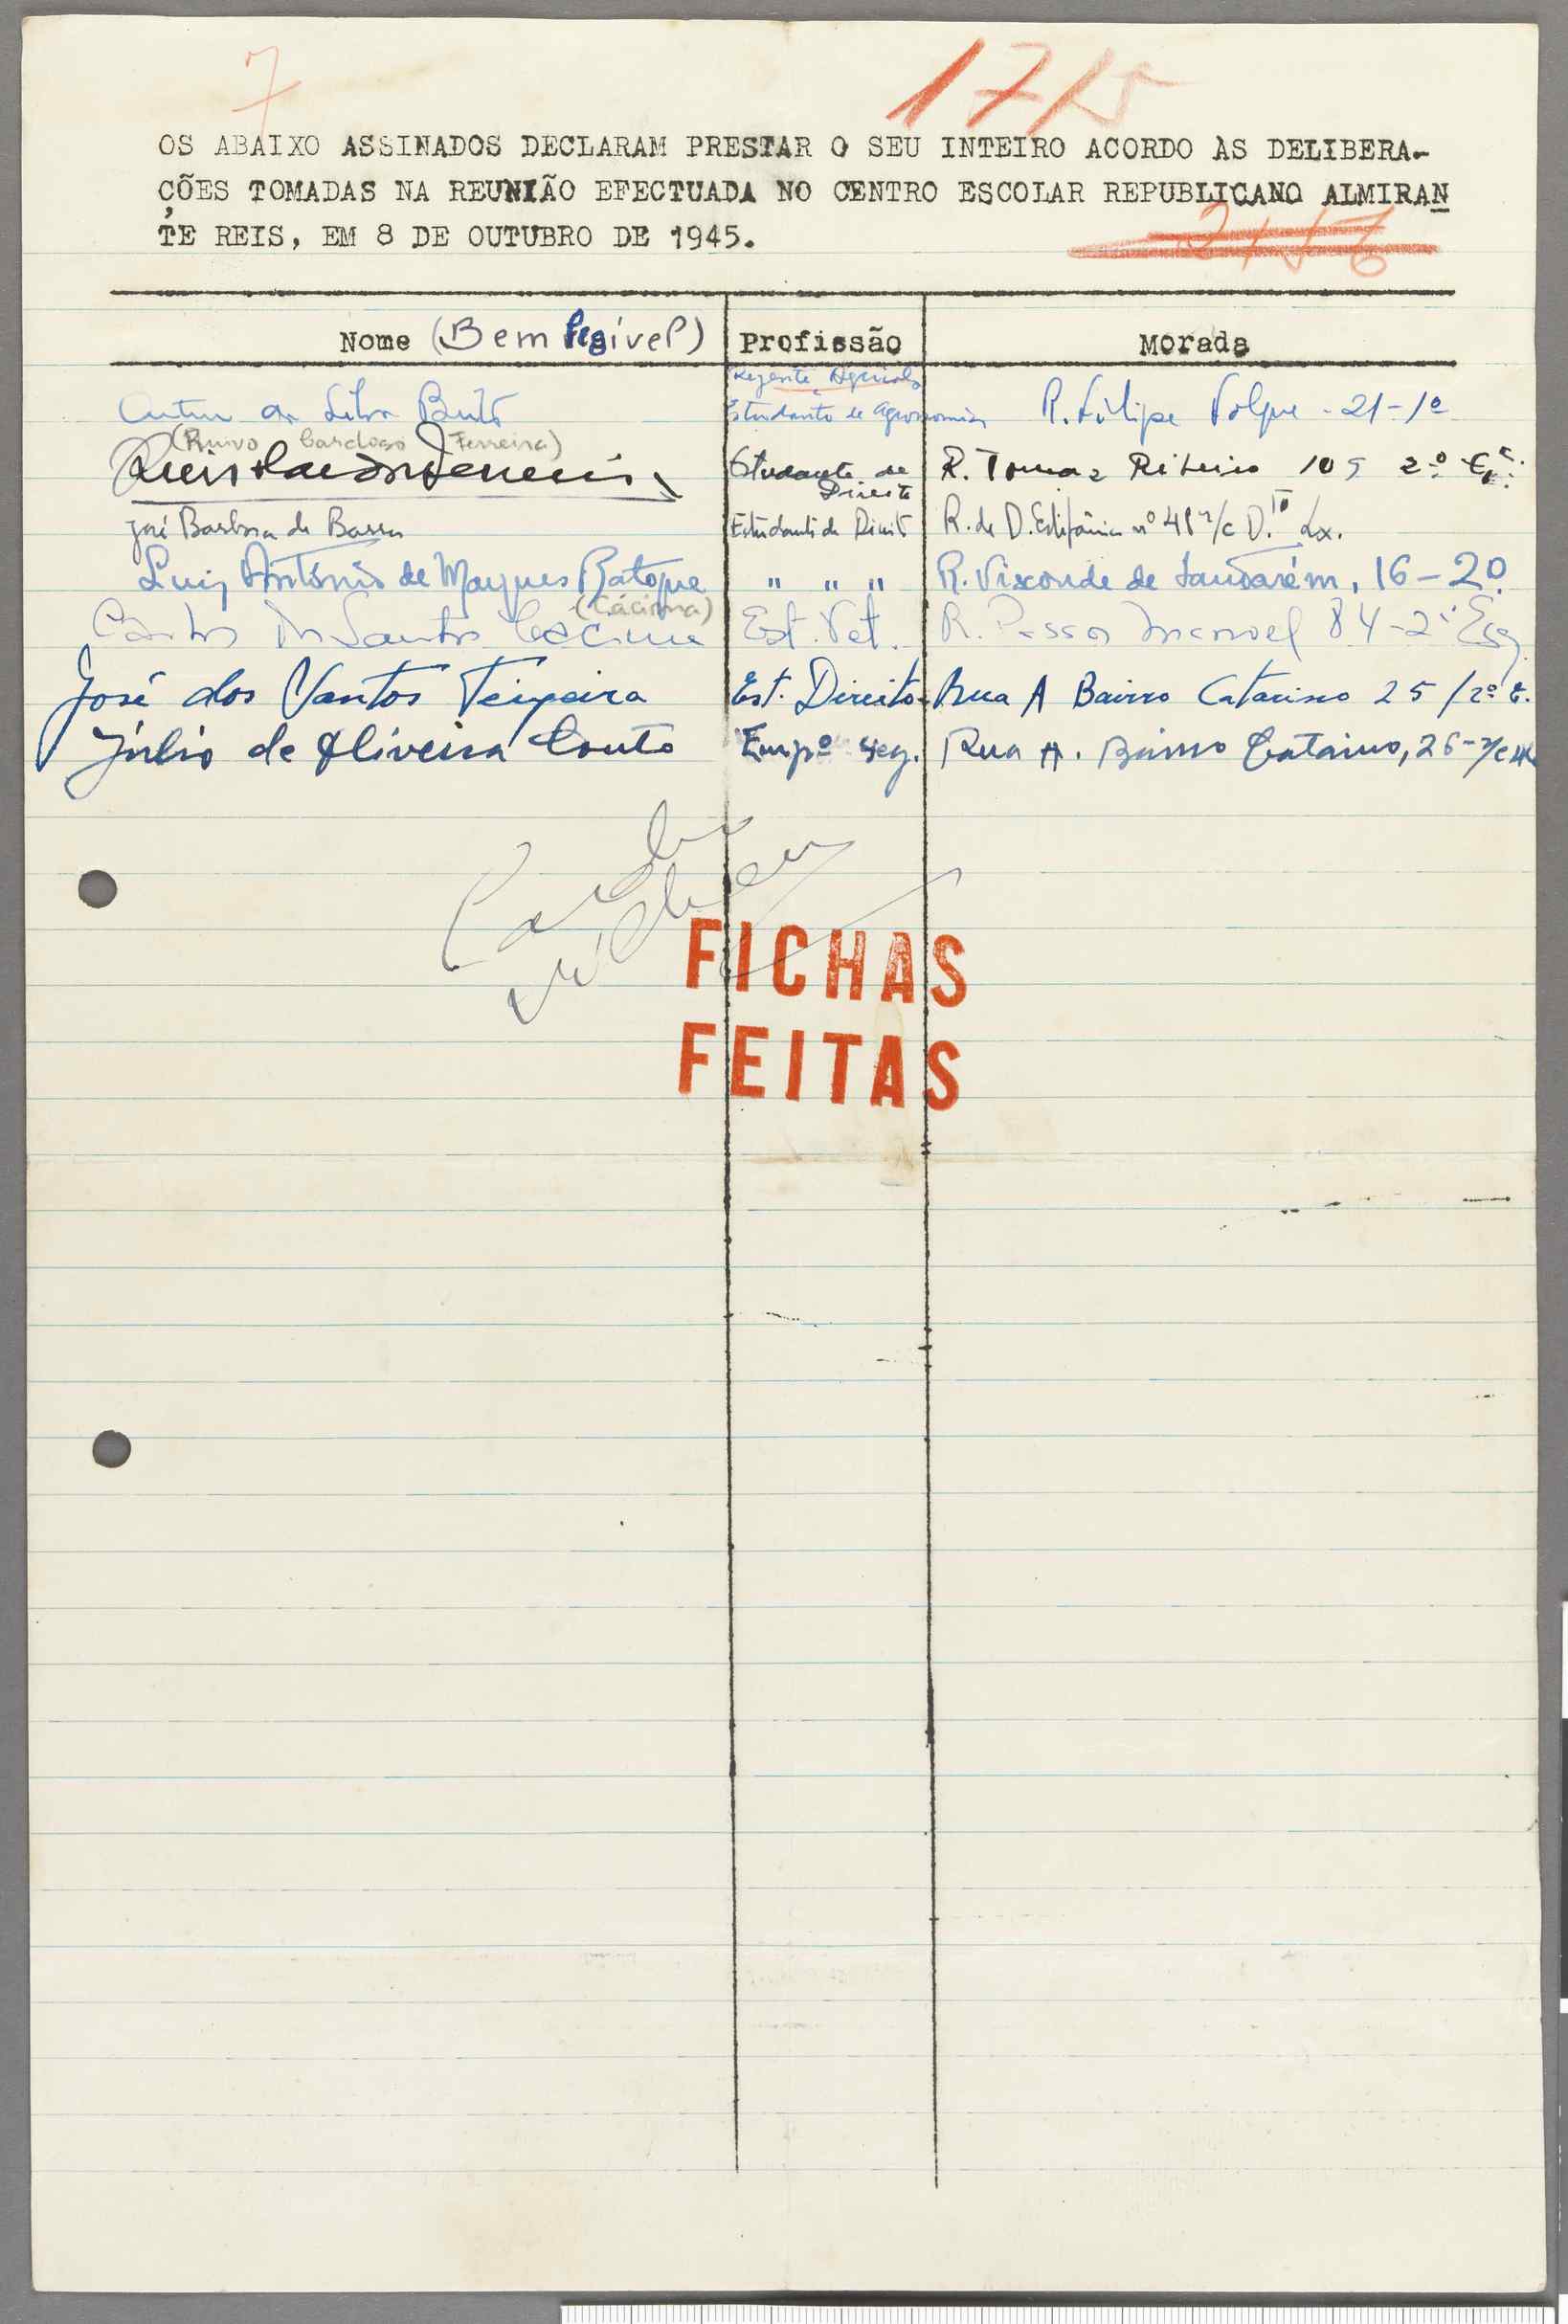 7 1715
OS ABAIXO ASSINADOS DECLARAM PRESTAR O SEU INTEIRO ACORDO ÀS DELIBERA-
ÇÕES TOMADAS NA REUNIÃO EFECTUADA NO CENTRO ESCOLAR REPUBLICANO ALMIRAN
TE REIS, EM 8 DE OUTUBRO DE 1945.
Nome (Bem legível) Profissão Morada
Regente Agrícola
da Silva Brito Estudante de Agronomia R. Filipe Folque - 21-1º
(Ruivo Cardoso Ferreira)
Estudante de Direito R. Tomaz Ribeiro 105 2º
José Barbosa de Barros Estudante de Direito R. de D. Estefânia nº 41 r/c D.to Lx.
Luiz António de Marques " " " R. Visconde de Santarém, 16-2º
(Cácima)
Carlos dos Santos Cacima Est. Vet. R. Passos Manoel 84-2º Esq
José dos Santos Teixeira Est. Direito Rua A Bairro Catarino 25 / 2º E.
Júlio de Oliveira Couto Empº seg. Rua A. Bairro Catarino, 26-r/c
FICHAS
FEITAS